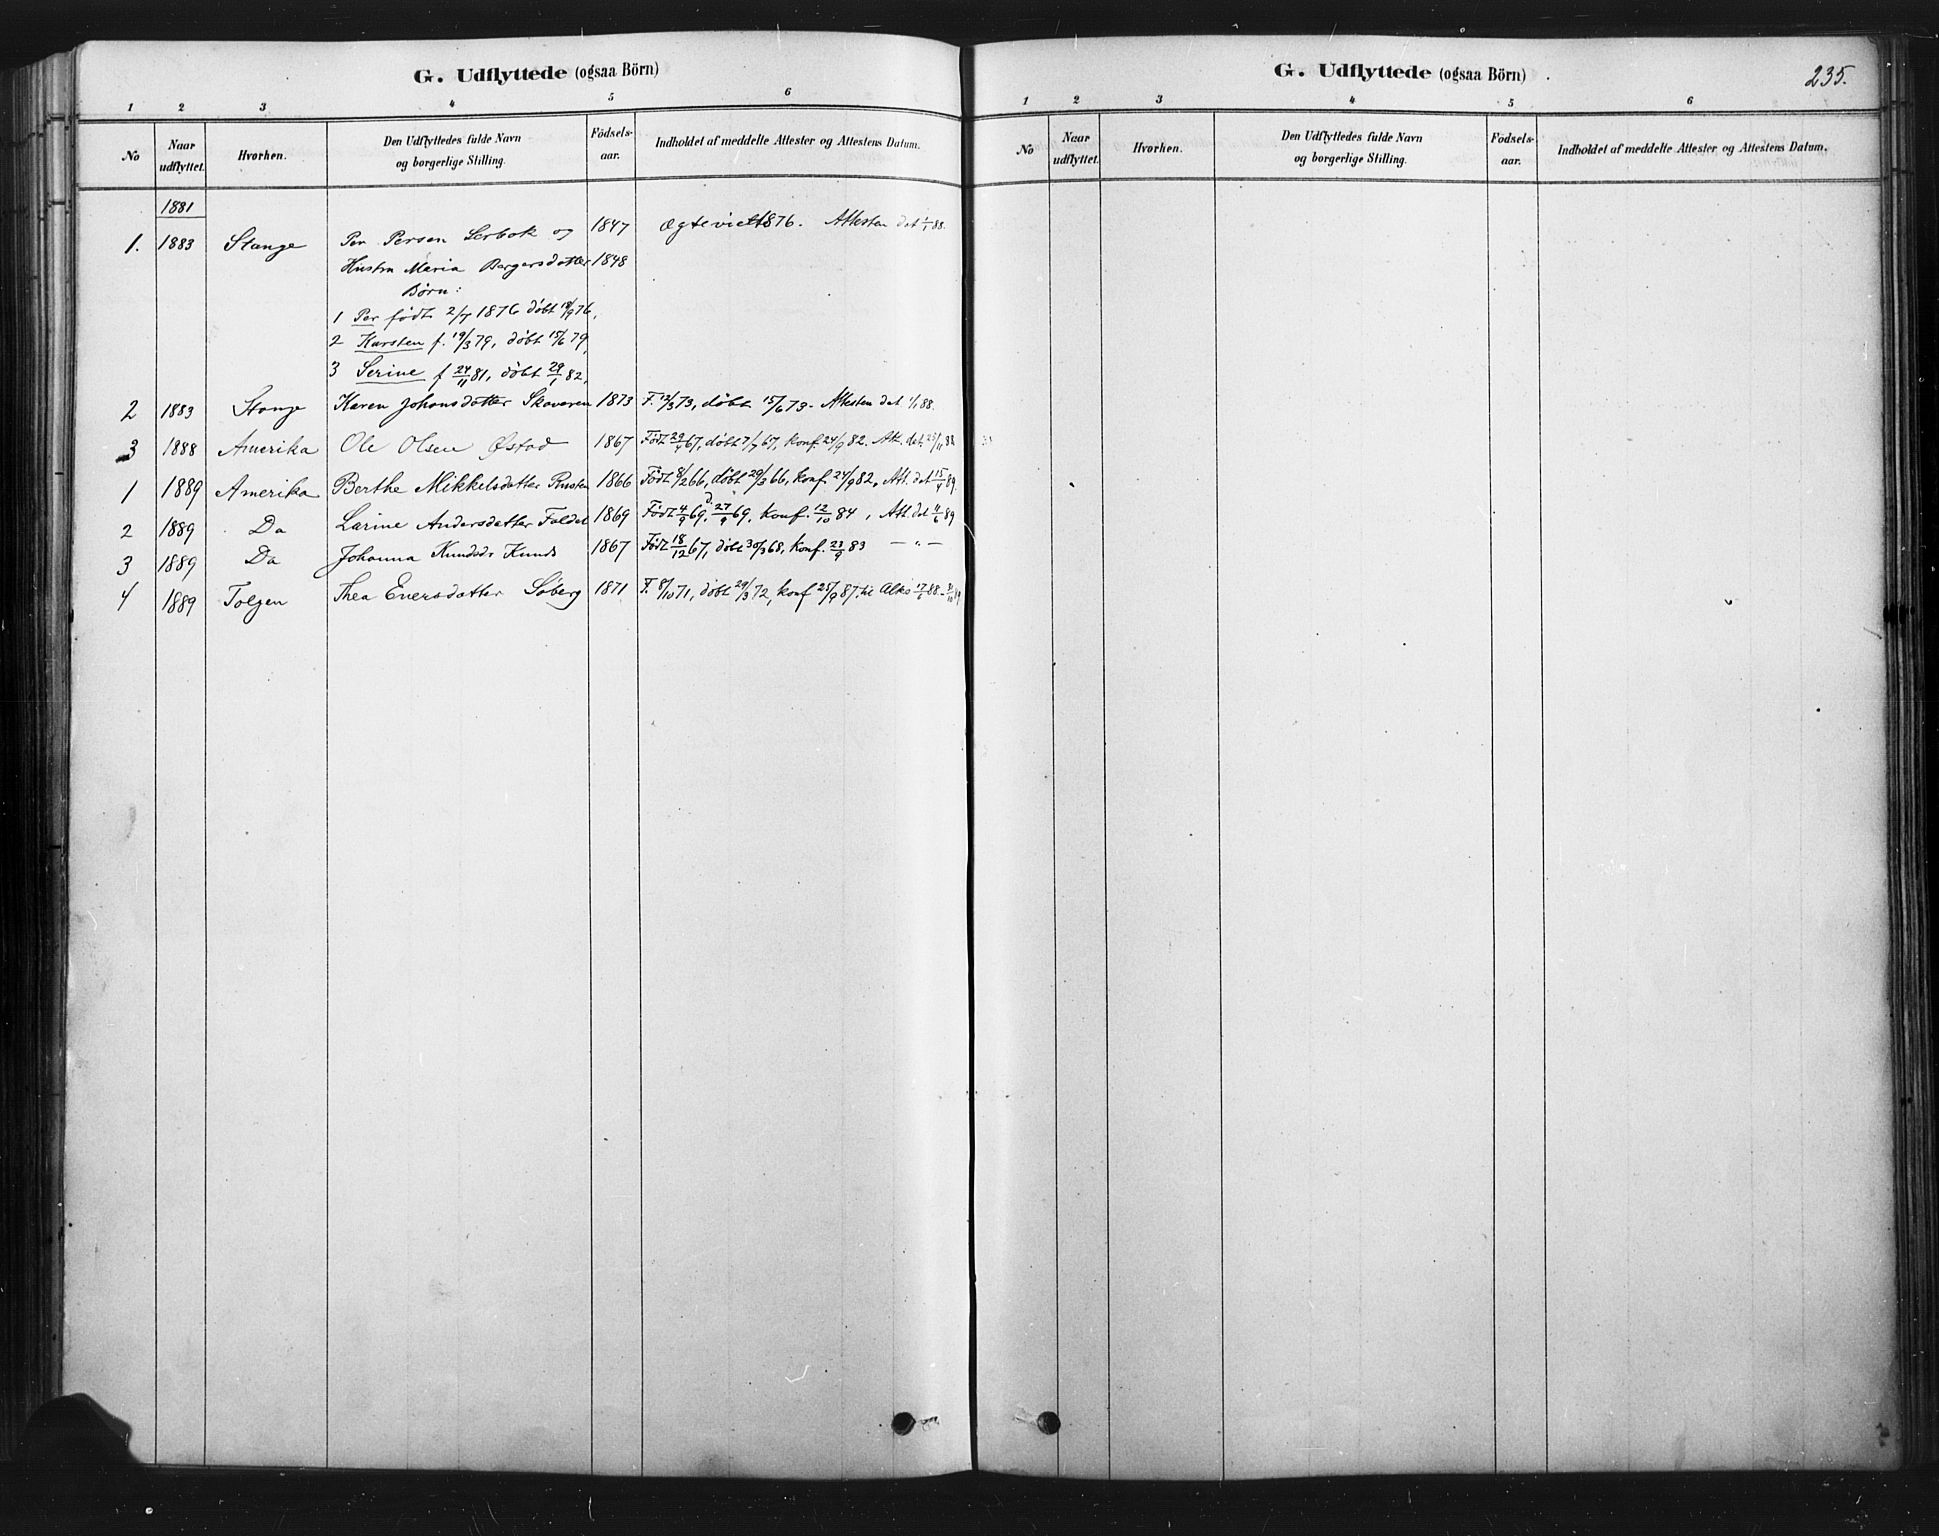 G. Udflyttede (ogsaa Börn)
1 2 3 4 5 6
No Naar udflyttet. Hvorhen. Den Udflyttedes fulde Navn og borgerlige Stilling. Födsels-aar. Indholdet af meddelte Attester og Attestens Datum.
1881
1. 1883 Stange Per Persen Serbok og 1847 Ægteviet 1876. Attesten dat 1/1 88.
Hustru Maria Bergersdatter 1848
Børn:
1 Per født 2/7 1876 døbt 18/9 76,
2 Karsten f. 19/3 79, døbt 15/6 79,
3 Serine f 24/11 81, døbt 29/1 82,
2 1883 Stange Karen Johansdatter Skoveren 1873 F. 12/3 73, døbt 15/6 73. Attesten dat 1/1 88.
3 1888 Amerika Ole Olsen Østad 1867 Født 29/4 67, døbt 7/7 67, konf. 24/9 82. Att. dat. 23/11 88
1 1889 Amerika Berthe Mikkelsdatter Rusten 1866 Født 8/2 66, døbt 29/3 66, konf. 24/9 82, Att. dat 15/4 89.
2 1889 Do Larine Andersdatter Foldal 1869 Født 4/9 69, d. 27/9 69, konf. 12/10 84, Att. dat 4/6 89
3 1889 Do Johanna Knudsdr Knuds 1867 Født 18/12 67, døbt 30/3 68, konf. 23/9 83 — „ —
4 1889 Tolgen Thea Enersdatter Søberg 1871 F. 8/10 71, døbt 29/3 72, konf 25/9 87. til Alks 17/6 88 - 31/10 89
G. Udflyttede (ogsaa Börn)
235.
1 2 3 4 5 6
No Naar udflyttet. Hvorhen. Den Udflyttedes fulde Navn og borgerlige Stilling. Födsels-aar. Indholdet af meddelte Attester og Attestens Datum.